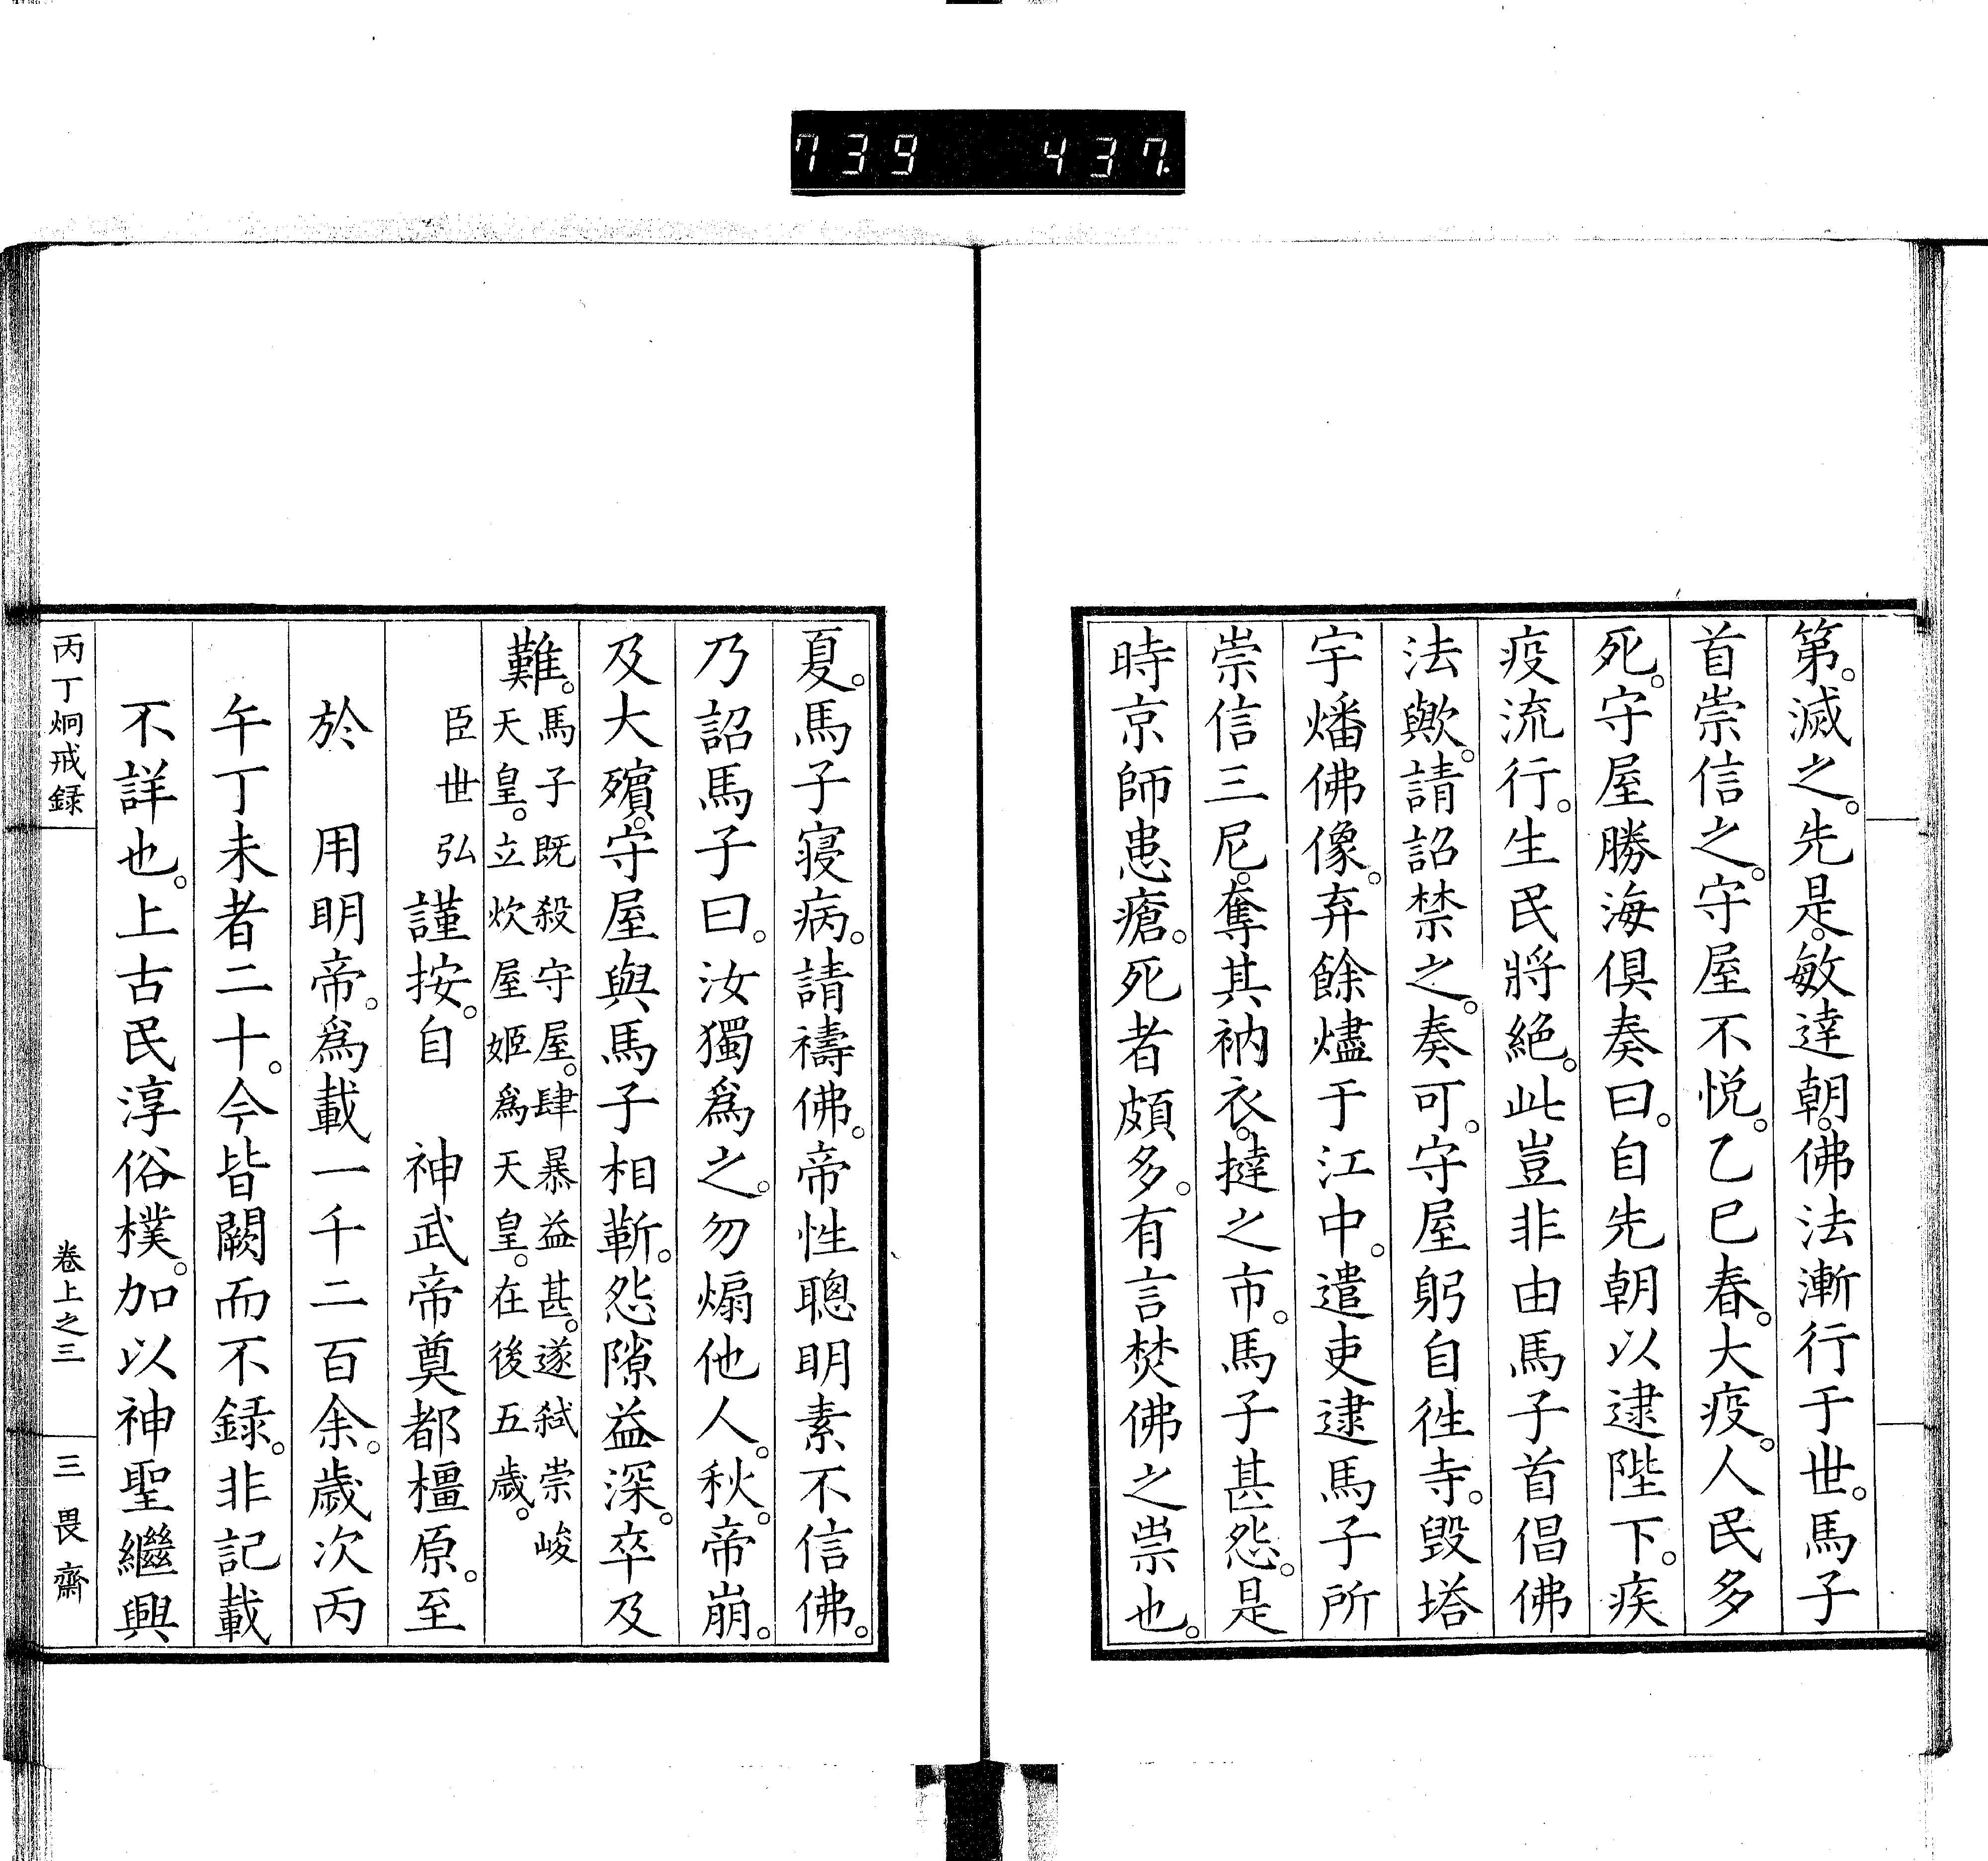 739 437.
第。滅之。先是。敏達朝。佛法漸行于世。馬子
首崇信之。守屋不悦。乙巳春。大疫。人民多
死。守屋勝海俱奏曰。自先朝以逮陛下。疾
疫流行。生民將絶。此豈非由馬子首倡佛
法歟。請詔禁之。奏可。守屋躬自徃寺。毀塔
宇燔佛像。弃餘燼于江中。遣吏逮馬子所
崇信三尼。奪其衲衣。撻之市。馬子甚怨。是
時京師患瘡。死者頗多。有言焚佛之祟也。
夏。馬子寝病。請禱佛。帝性聰明素不信佛。
乃詔馬子曰。汝獨爲之。勿煽他人。秋。帝崩。
及大殯。守屋與馬子相靳。怨隙益深。卒及
難。馬子既殺守屋。肆暴益甚。遂弑崇峻
天皇。立炊屋姬爲天皇。在後五歲。
臣世弘謹按。自 神武帝奠都橿原。至
於 用明帝。爲載一千二百余。歲次丙
午丁未者二十。今皆闕而不録。非記載
不詳也。上古民淳俗樸。加以神聖繼興
丙丁炯戒録 卷上之三 三畏齋